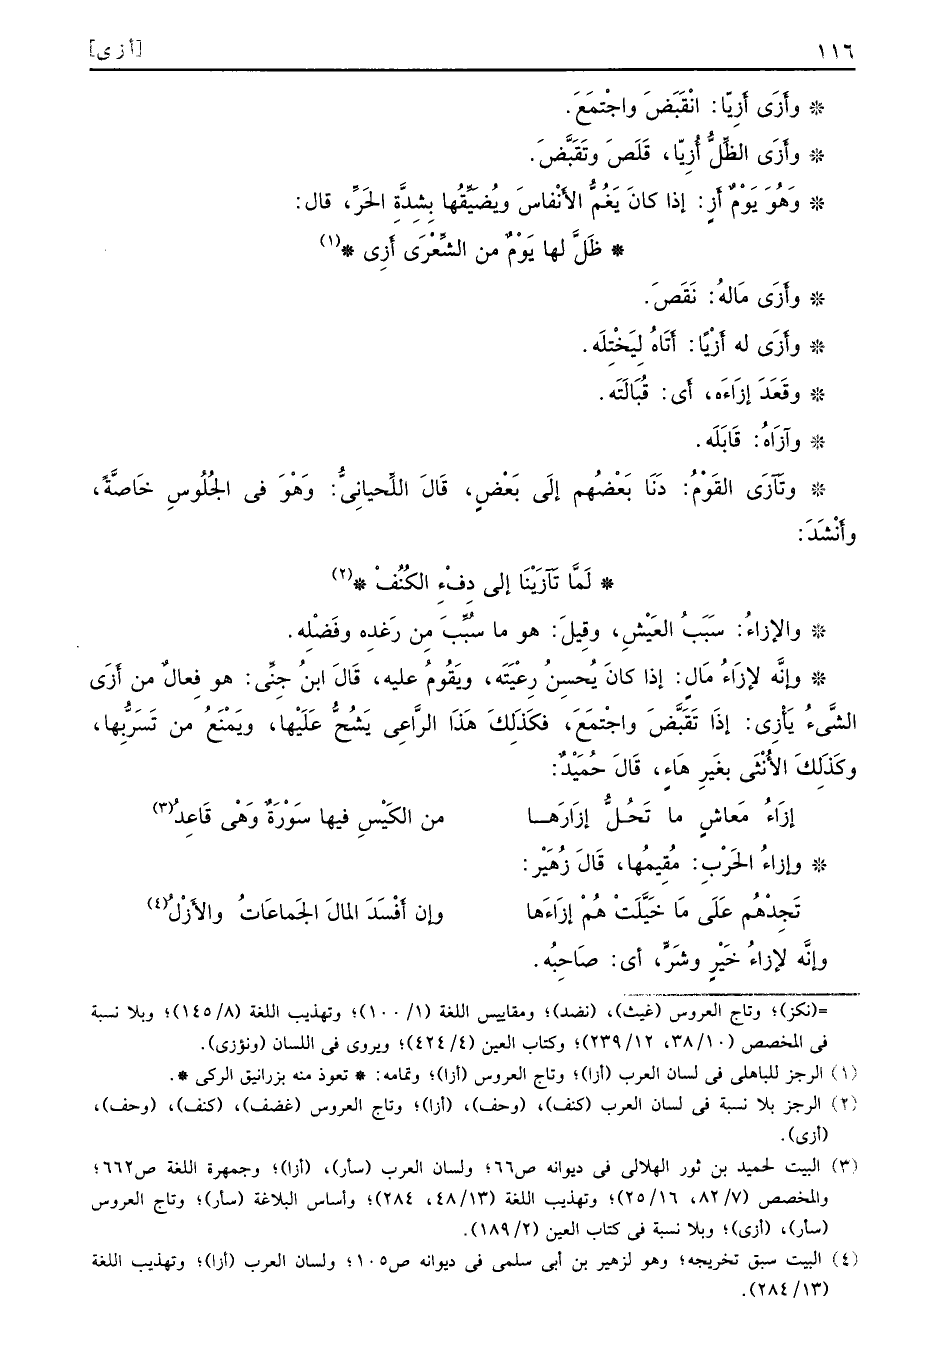 ١١٦ [أ ز ى]
* وأَزَى أَزِيّا: انْقَبَضَ واجْتمَعَ.
* وأَزَى الظِّلُّ أُزِيّا، قَلَصَ وتَقَبَّضَ.
* وَهُوَ يَوْمٌ أَزٍ: إذا كانَ يَغُمُّ الأَنْفاسَ ويُضَيِّقُها بِشدَّةِ الحَرِّ، قال:
* ظَلَّ لها يَوْمٌ من الشِّعْرَى أَزِى *(١)
* وأَزَى مَالهُ: نَقَصَ.
* وأَزَى له أَزْيًا: أَتَاهُ لِيَخْتِلَه.
* وقَعَدَ إزَاءَه، أى: قُبَالَتَه.
* وآزَاهُ: قَابَلَه.
* وتَآزَى القَوْمُ: دَنَا بَعْضُهم إلَى بَعْضٍ، قَالَ اللِّحيانِىُّ: وَهْوَ فى الجُلُوسِ خَاصَّةً،
وأَنْشَدَ:
* لَمَّا تَآزَيْنَا إلى دِفْءِ الكُنُفْ *(٢)
* والإزاءُ: سَبَبُ العَيْشِ، وقيلَ: هو ما سُبِّبَ مِن رَغَدِه وفَضْلِه.
* وإنَّه لإزَاءُ مَالٍ: إذا كانَ يُحسِنُ رِعْيَتَه، ويَقُومُ عليه، قَالَ ابنُ جِنِّى: هو فِعالٌ من أَزَى
الشَّىءُ يَأْزِى: إذَا تَقَبَّضَ واجْتمَعَ، فكَذَلكَ هَذَا الرَّاعِى يَشُحُّ عَلَيْها، ويَمْنَعُ من تَسَرُّبِها،
وكَذَلِكَ الأُنْثَى بغَيرِ هَاءٍ، قَالَ حُمَيْدٌ:
إزَاءُ مَعاشٍ ما تَحُـلُّ إزَارَهـا من الكَيْسِ فيها سَوْرَةٌ وَهْى قَاعِدُ(٣)
* وإزاءُ الحَرْبِ: مُقِيمُها، قَالَ زُهَيْر:
تَجِدْهُم عَلَى مَا خَيَّلَتْ هُمْ إزَاءَها وإن أَفْسَدَ المَالَ الجَماعَاتُ والأَزْلُ(٤)
وإنَّه لإزاءُ خَيْرٍ وشَرٍّ، أى: صَاحِبُه.
=(نكز)؛ وتاج العروس (غيث)، (نضد)؛ ومقاييس اللغة (١/ ١٠٠)؛ وتهذيب اللغة (٨/ ١٤٥)؛ وبلا نسبة
فى المخصص (١٠/ ٣٨، ١٢/ ٢٣٩)؛ وكتاب العين (٤/ ٤٢٤)؛ ويروى فى اللسان (ونؤزى).
(١) الرجز للباهلى فى لسان العرب (أزا)؛ وتاج العروس (أزا)؛ وتمامه: * تعوذ منه بزرانيق الركى *.
(٢) الرجز بلا نسبة فى لسان العرب (كنف)، (وحف)، (أزا)؛ وتاج العروس (غضف)، (كنف)، (وحف)،
(أزى).
(٣) البيت لحميد بن ثور الهلالى فى ديوانه ص٦٦؛ ولسان العرب (سأر)، (أزا)؛ وجمهرة اللغة ص٦٦٢؛
والمخصص (٧/ ٨٢، ١٦/ ٢٥)؛ وتهذيب اللغة (١٣/ ٤٨، ٢٨٤)؛ وأساس البلاغة (سأر)؛ وتاج العروس
(سأر)، (أزى)؛ وبلا نسبة فى كتاب العين (٢/ ١٨٩).
(٤) البيت سبق تخريجه؛ وهو لزهير بن أبى سلمى فى ديوانه ص١٠٥؛ ولسان العرب (أزا)؛ وتهذيب اللغة
(١٣/ ٢٨٤).